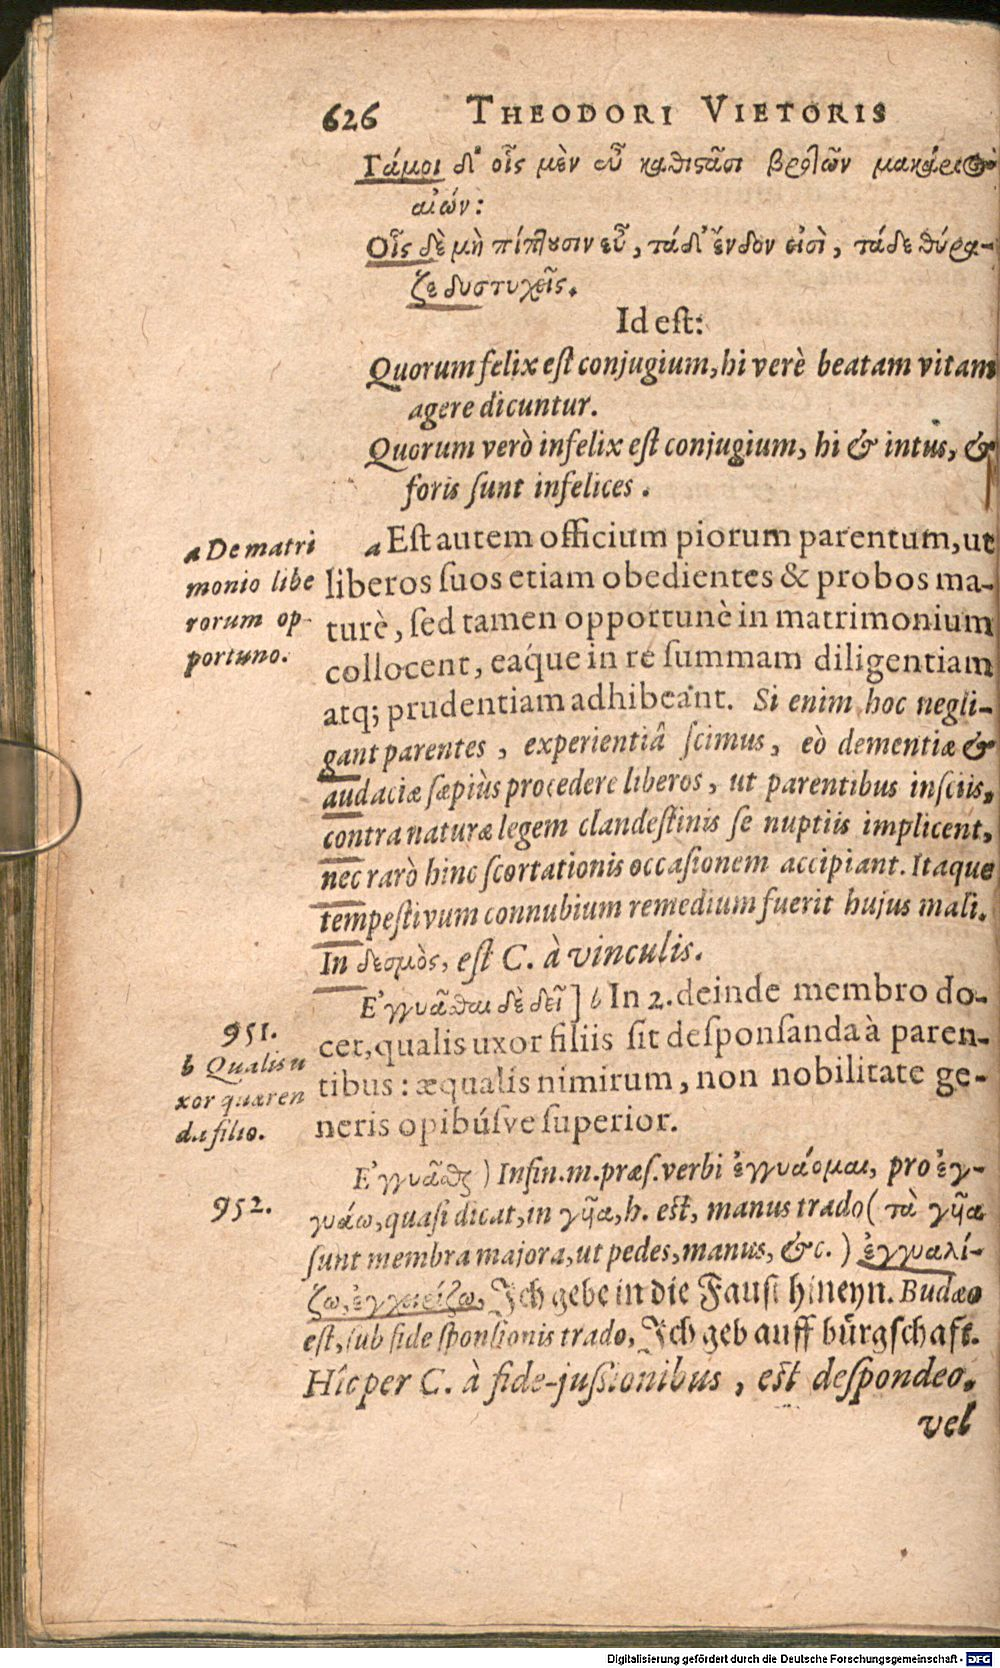 626 THEODORI VIETORIS
Γάμοι δ' οἷς μὲν εὖ καθιςᾶσι βροτῶν μακάριος
αἰών:
Οἷς δὲ μὴ πίπτουσιν εὖ, τάδ' ἔνδον εἰσὶ, τάδε θύρα-
ζε δυστυχεῖς.
Id eſt:
Quorum felix eſt conjugium, hi verè beatam vitam
agere dicuntur.
Quorum verò infelix eſt conjugium, hi & intus, &
foris ſunt infelices.
a De matri
monio libe
rorum op-
portuno.
a Eſt autem officium piorum parentum, ut
liberos ſuos etiam obedientes & probos ma-
turè, ſed tamen opportunè in matrimonium
collocent, eáque in re ſummam diligentiam
atq; prudentiam adhibeant. Si enim hoc negli-
gant parentes, experientiâ ſcimus, eò dementiæ &
audaciæ ſæpiùs procedere liberos, ut parentibus inſciis,
contra naturæ legem clandeſtinis ſe nuptiis implicent,
nec rarò hinc ſcortationis occaſionem accipiant. Itaque
tempeſtivum connubium remedium fuerit hujus mali.
In δεσμὸς, eſt C. à vinculis.
951.
b Qualis u
xor quæren
da filio.
Ἐγγυᾶσθαι δὲ δεῖ] b In 2. deinde membro do-
cet, qualis uxor filiis ſit deſponſanda à paren-
tibus: æqualis nimirum, non nobilitate ge-
neris opibúſve ſuperior.
952.
Ἐγγυᾶσθαι) Infin. m. præſ. verbi ἐγγυάομαι, pro ἐγ-
γυάω, quaſi dicat, in γῆα, h. eſt, manus trado (τὰ γῆα
ſunt membra majora, ut pedes, manus, &c.) ἐγγυαλί-
ζω, ἐγχειρίζω, Ich gebe in die Fauſt hineyn. Budæo
eſt, ſub fide ſponſionis trado, Ich geb auff bürgſchaft.
Hîc per C. à fide-juſsionibus, eſt deſpondeo,
vel
Digitalisierung gefördert durch die Deutsche Forschungsgemeinschaft - DFG